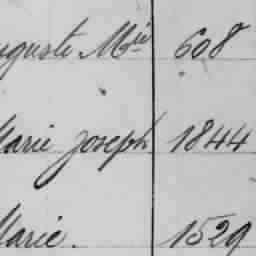 uguste Mie 608
Marie Joseph 1844
Marie. 1529